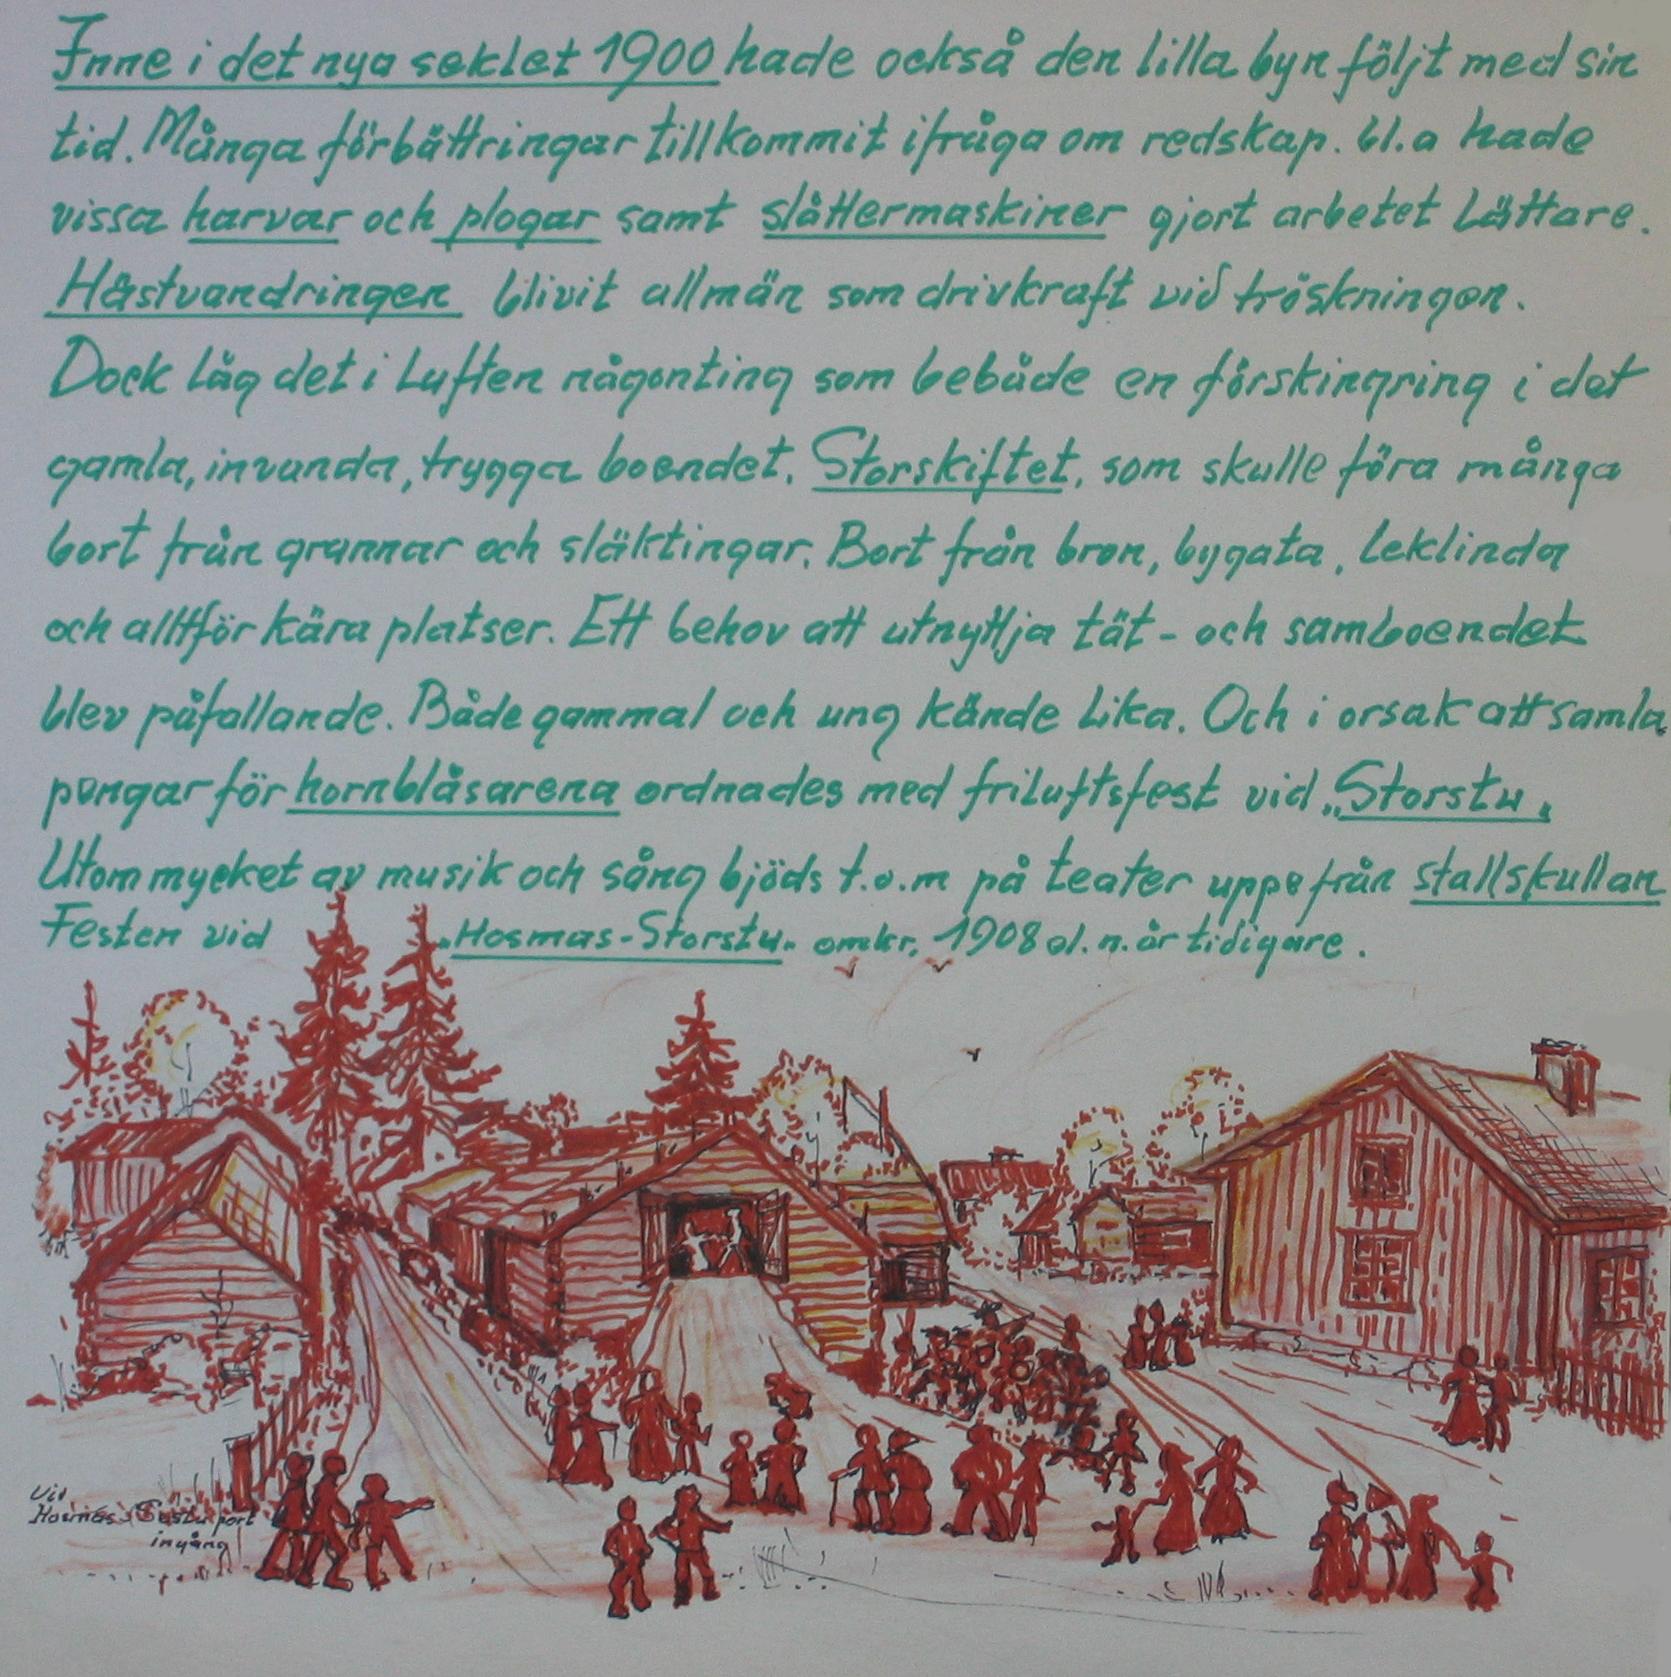 Inne i det nya seklet 1900 hade också den lilla byn följt med sin
tid. Många förbättringar tillkommit ifråga om redskap. bl.a hade
vissa harvar och plogar samt slåttermaskiner gjort arbetet Lättare.
Hästvandringen blivit allmän som drivkraft vid tröskningen.
Dock låg det i Luften någonting som bebåde en förskingring i det
gamla, invanda, trygga boendet. Storskiftet, som skulle föra många
bort från grannar och släktingar. Bort från bron, bygata, Leklinda
och alltför kära platser. Ett behov att utnyttja tät- och samboendet
blev påfallande. Både gammal och ung kände Lika. Och i orsak att samla
pengar för hornblåsarena ordnades med friluftsfest vid „Storstu„
Utom mycket av musik och sång bjöds t.o.m på teater uppe från stallskullan
Festen vid „Hosmas-Storstu„ omkr. 1908 el. n. år tidigare.
Vid
Hosmas port
ingång